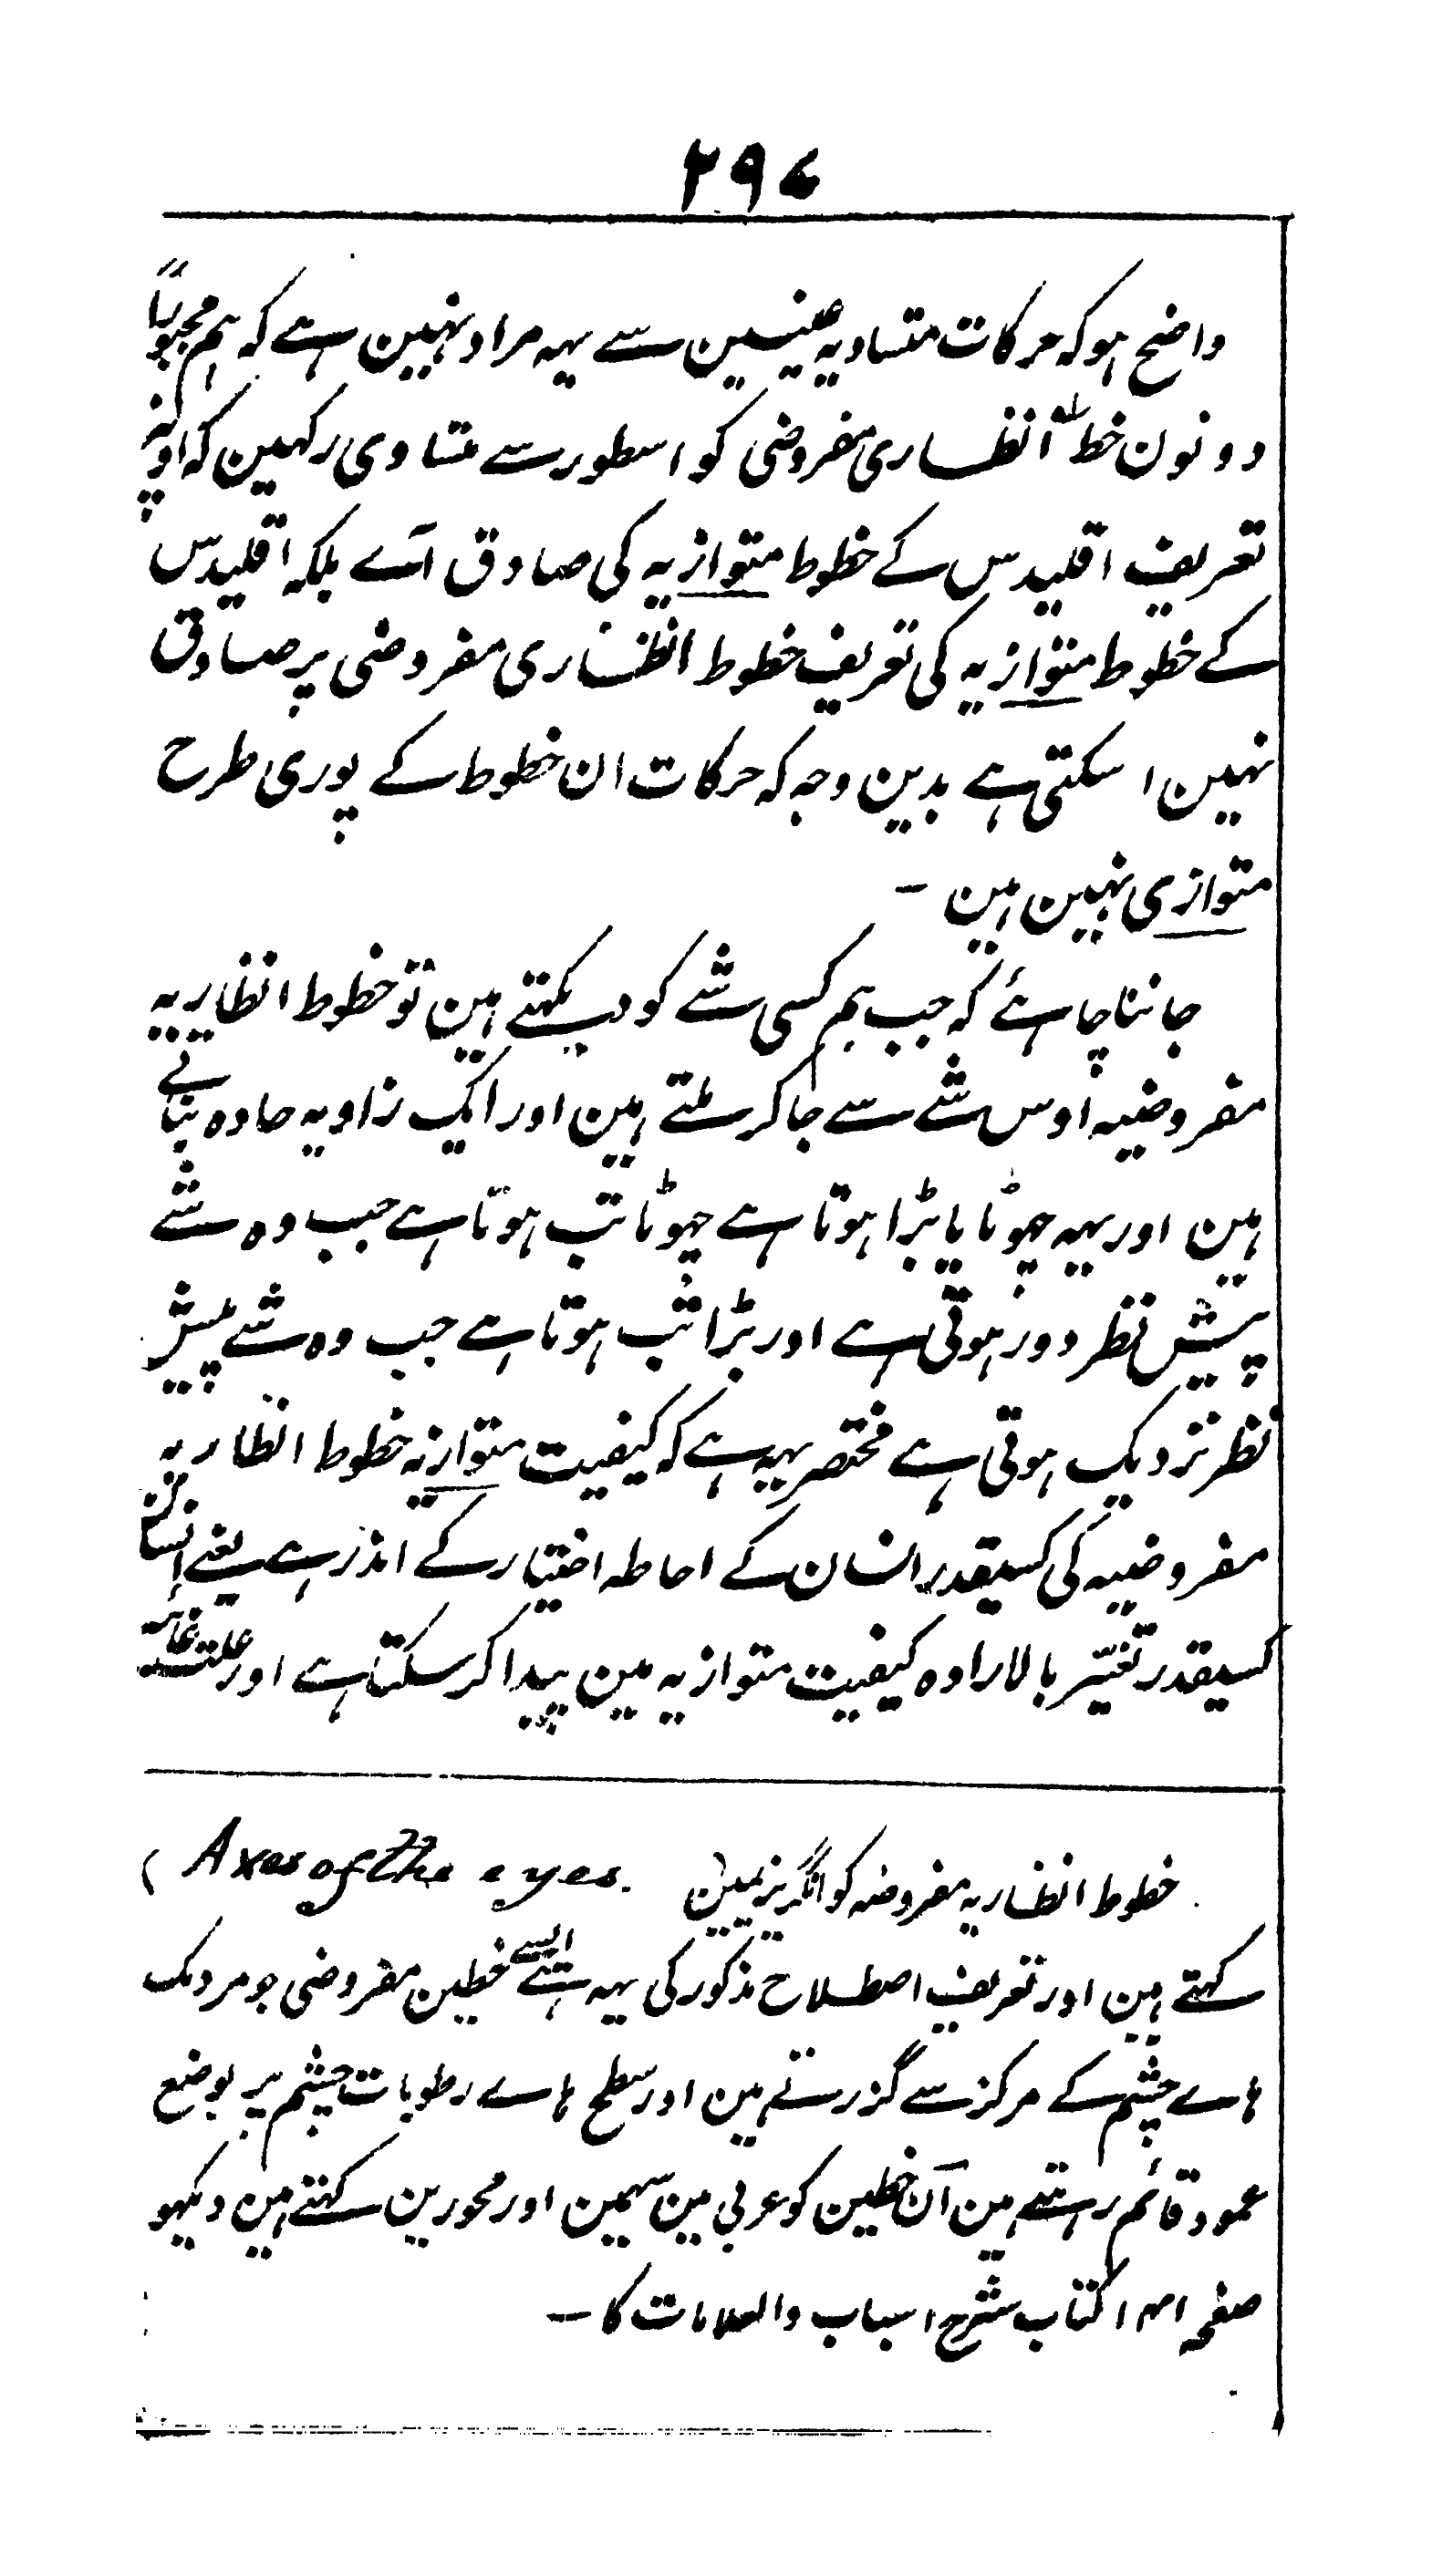 ۲۹۷
واضح ہو کہ حرکات متساویہ عینین سے یہہ مراد نہین ہے کہ ہم مجبوباً
دونون خط انظاری مفروضی کو اسطور سے متساوی رکہین کہ اونپر
تعریف اقلیدس کے خطوط متوازیہ کی صادق آے بلکہ اقلیدس
کے خطوط متوازیہ کی تعریف خطوط انظاری مفروضی پر صادق
نہین ا سکتی ہے بدین وجہ کہ حرکات ان خطوط کے پوری طرح
متوازی نہین ہین -
جاننا چاہئے کہ جب ہم کسی شے کو دیکہتے ہین تو خطوط انظاریہ
مفروضیہ اوس شے سے جا کر ملتے ہین اور ایک زاویہ حادہ بناتے
ہین اور یہہ چہوٹا یا بڑا ہوتا ہے چہوٹا تب ہوتا ہے جب وہ شے
پیش نظر دور ہوتی ہے اور بڑا تب ہوتا ہے جب وہ شے پیش
نظر نزدیک ہوتی ہے مختصر یہہ ہے کہ کیفیت متوازیہ خطوط انظاریہ
مفروضیہ کی کسیقدر انسان کے احاطہ اختیار کے اندر ہے یعنے انسان
کسیقدر تغیّر بالارادہ کیفیت متوازیہ مین پیدا کر سکتا ہے اور علت غائیہ
خطوط انظاریہ مفروضہ کو انگریزیمین (Axes of the eyes.)
کہتے ہین اور تعریف اصطلاح مذکور کی یہہ ہے ایسے خطین مفروضی جو مردمک
ہاے چشم کے مرکز سے گزرتے ہین اور سطح ہاے رطوبات چشم پر بوضع
عمود قائم رہتے ہین اُن خطین کو عربی مین سہمین اور محورین کہتے ہین دیکہو
صفحہ ۱۴۱ کتاب شرح اسباب والعلامات کا -